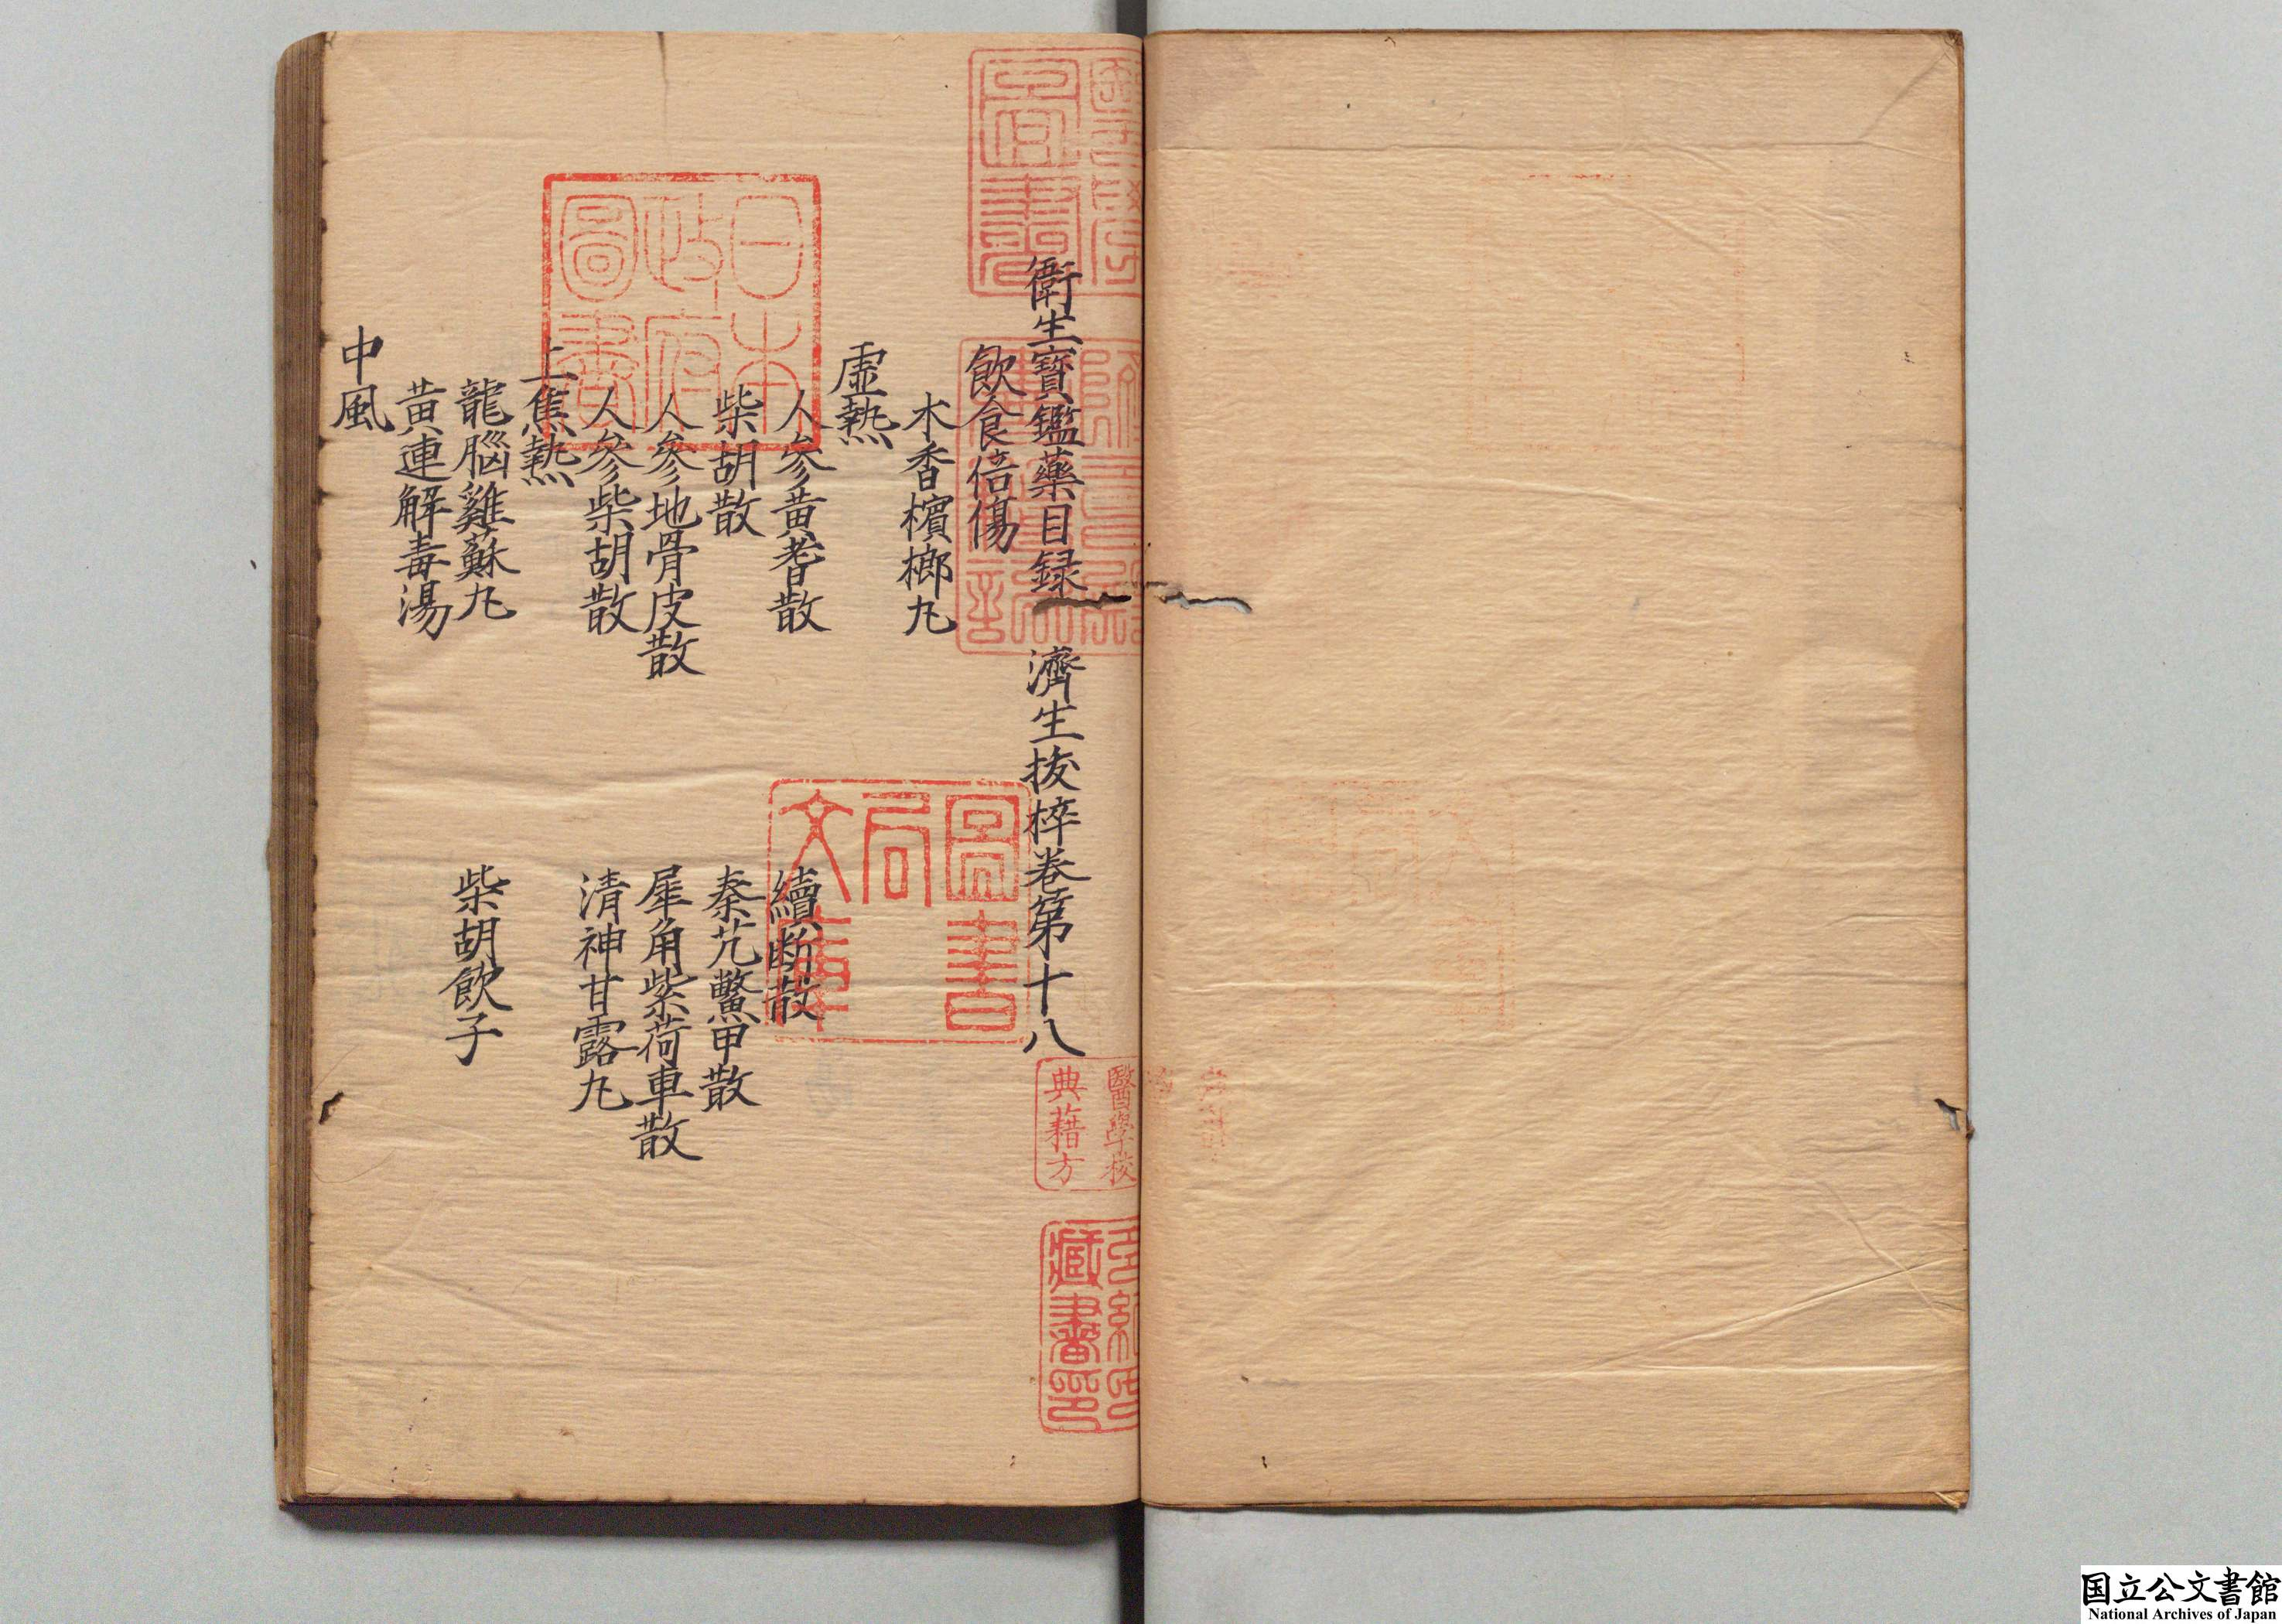 衛生寶鑑藥目録　濟生抜粹卷第十八
飲食倍傷
木香檳榔丸
虛熱
人參黄耆散　續断散
柴胡散　秦艽鱉甲散
人參地骨皮散　犀角紫荷車散
人參柴胡散　清神甘露丸
上焦熱
龍腦雞蘇丸　柴胡飲子
黄連解毒湯
中風
日本
政府
圖書
圖書
局
文庫
醫學校
典藉方
多紀氏
藏書印
国立公文書館
National Archives of Japan